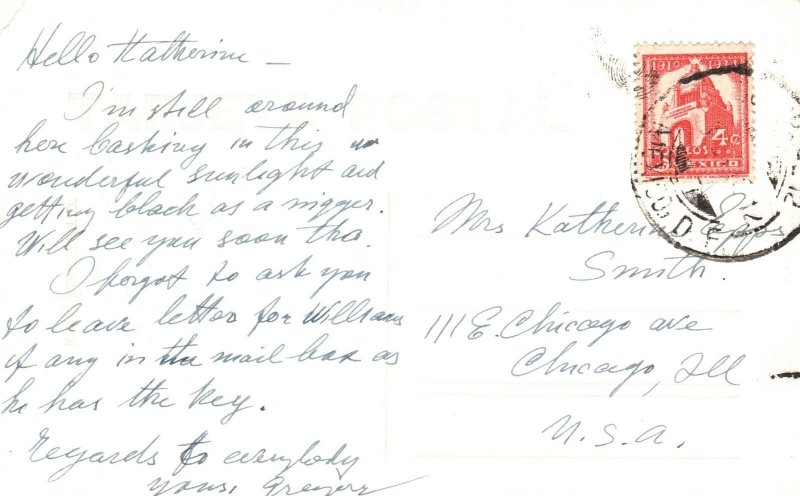 Hello Katherine —
I'm still around
here basking in this
wonderful sunlight and
getting black as a nigger.
Will see you soon tho.
I forgot to ask you
to leave letter for Williams
if any in the mail box as
he has the key.
Regards to everybody
yours, Gregory
1910
4¢
MEXICO
MEXICO, D.F.
Mrs Katherine Epps
Smith.
111 E. Chicago ave
Chicago, Ill
U.S.A.